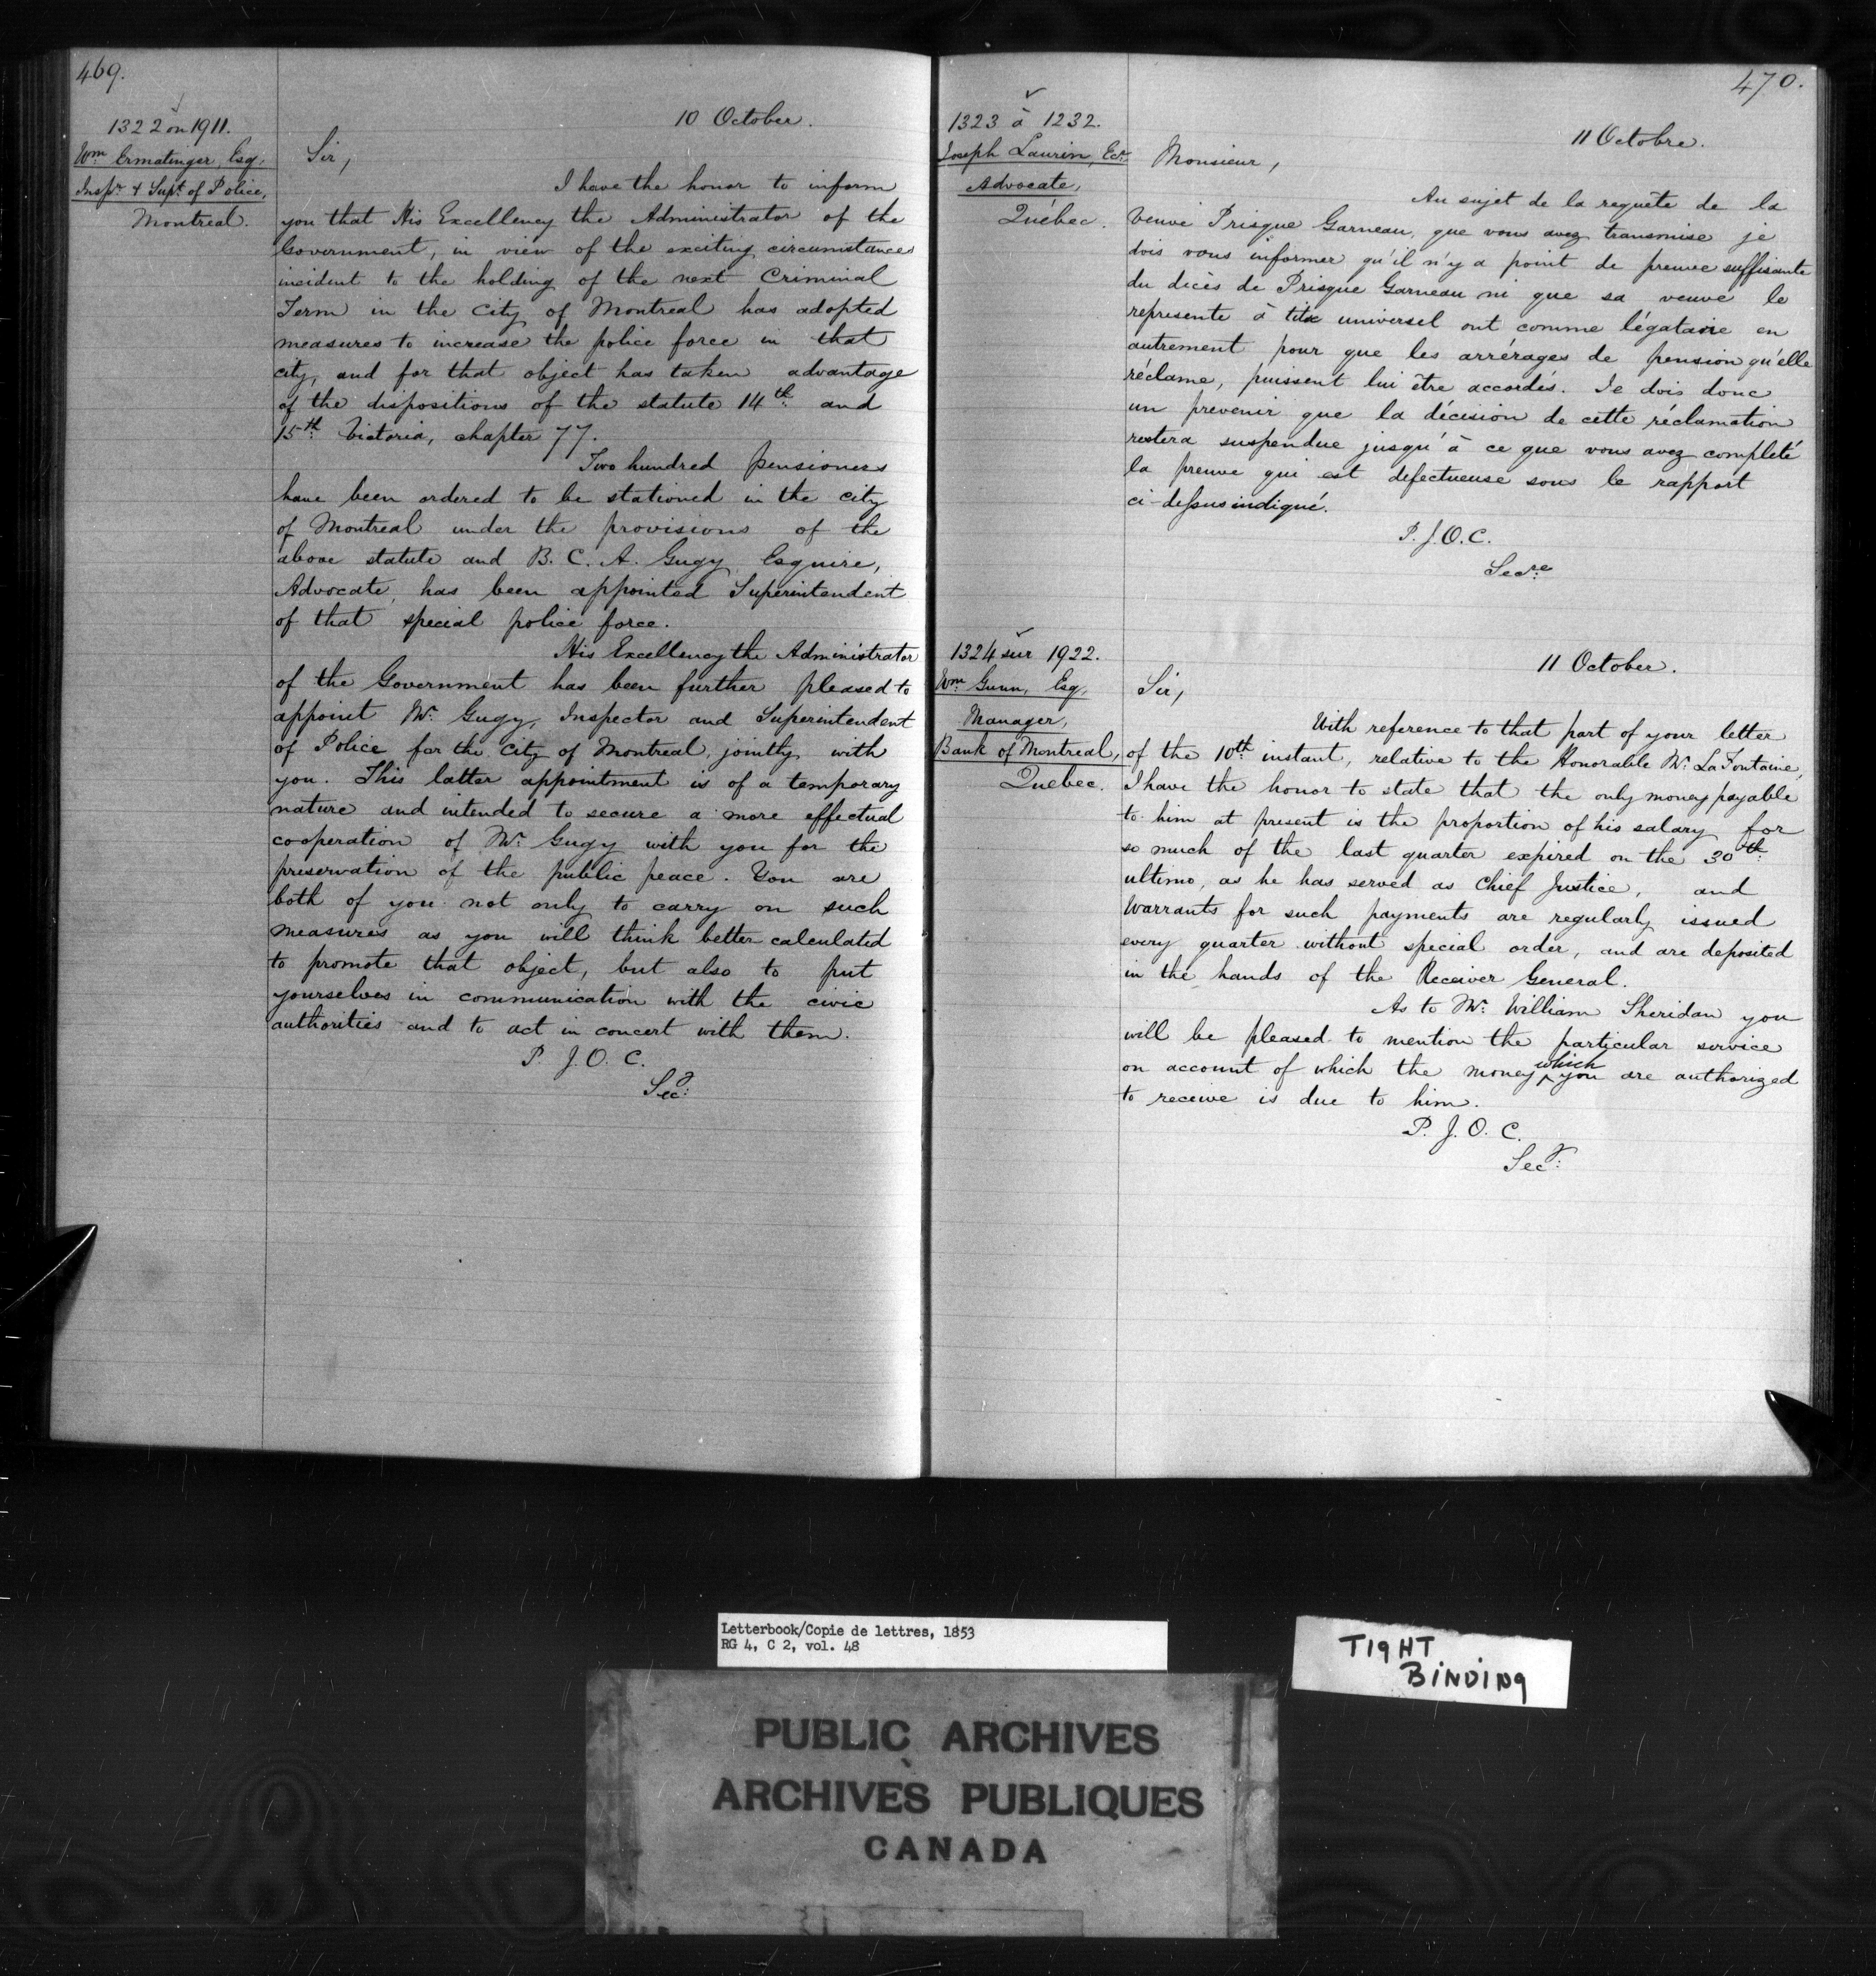 469.
1322 on 1911.
Wm Ermatinger, Esq.
Inspr & Supt of Police,
Montreal.
10 October.
Sir,
I have the honor to inform
you that His Excellency the Administrator of the
Government, in view of the exciting circumstances
incident to the holding of the next Criminal
Term in the City of Montreal has adopted
measures to increase the police force in that
city, and for that object has taken advantage
of the dispositions of the statute 14th and
15th Victoria, chapter 77.
Two hundred pensioners
have been ordered to be stationed in the city
of Montreal under the provisions of the
above statute and B. C. A. Gugy Esquire,
Advocate, has been appointed Superintendent
of that special police force.
His Excellency the Administrator
of the Government has been further pleased to
appoint Mr. Gugy, Inspector and Superintendent
of Police for the City of Montreal, jointly with
you. This latter appointment is of a temporary
nature and intended to secure a more effectual
cooperation of Mr. Gugy with you for the
preservation of the public peace. You are
both of you not only to carry on such
measures as you will think better calculated
to promote that object, but also to put
yourselves in communication with the civic
authorities and to act in concert with them.
P. J. O. C.
Secy:
470.
1323 à 1232.
Joseph Laurin, Ecr.
Advocate,
Québec.
11 Octobre.
Monsieur,
Au sujet de la requête de la
Veuve Prisque Garneau, que vous avez transmise je
dois vous informer qu'il n'y a point de preuve suffisante
du décès de Prisque Garneau ni que sa veuve le
represente à titre universel ont comme légataire en
autrement pour que les arrérages de pension qu'elle
réclame, puissent lui être accordés. Je dois donc
un prevenir que la décision de cette réclamation
restera suspendue jusqu'à ce que vous avez complété
la preuve qui est defectueuse sous le rapport
ci-dessus indiqué.
P. J. O. C.
Secre
1324 sur 1922.
Wm Gunn, Esq,
Manager,
Bank of Montreal,
Quebec.
11 October.
Sir,
With reference to that part of your letter
of the 10th instant, relative to the Honorable Mr. LaFontaine,
I have the honor to state that the only money payable
to him at present is the proportion of his salary for
so much of the last quarter expired on the 30th
ultimo, as he has served as Chief Justice, and
Warrants for such payments are regularly issued
every quarter without special order, and are deposited
in the hands of the Receiver General.
As to Mr. William Sheridan you
will be pleased to mention the particular service
on account of which the money which you are authorized
to receive is due to him.
P. J. O. C.
Secy:
Letterbook/Copie de lettres, 1853
RG 4, C 2, vol. 48
TIGHT
BINDING
PUBLIC ARCHIVES
ARCHIVES PUBLIQUES
CANADA